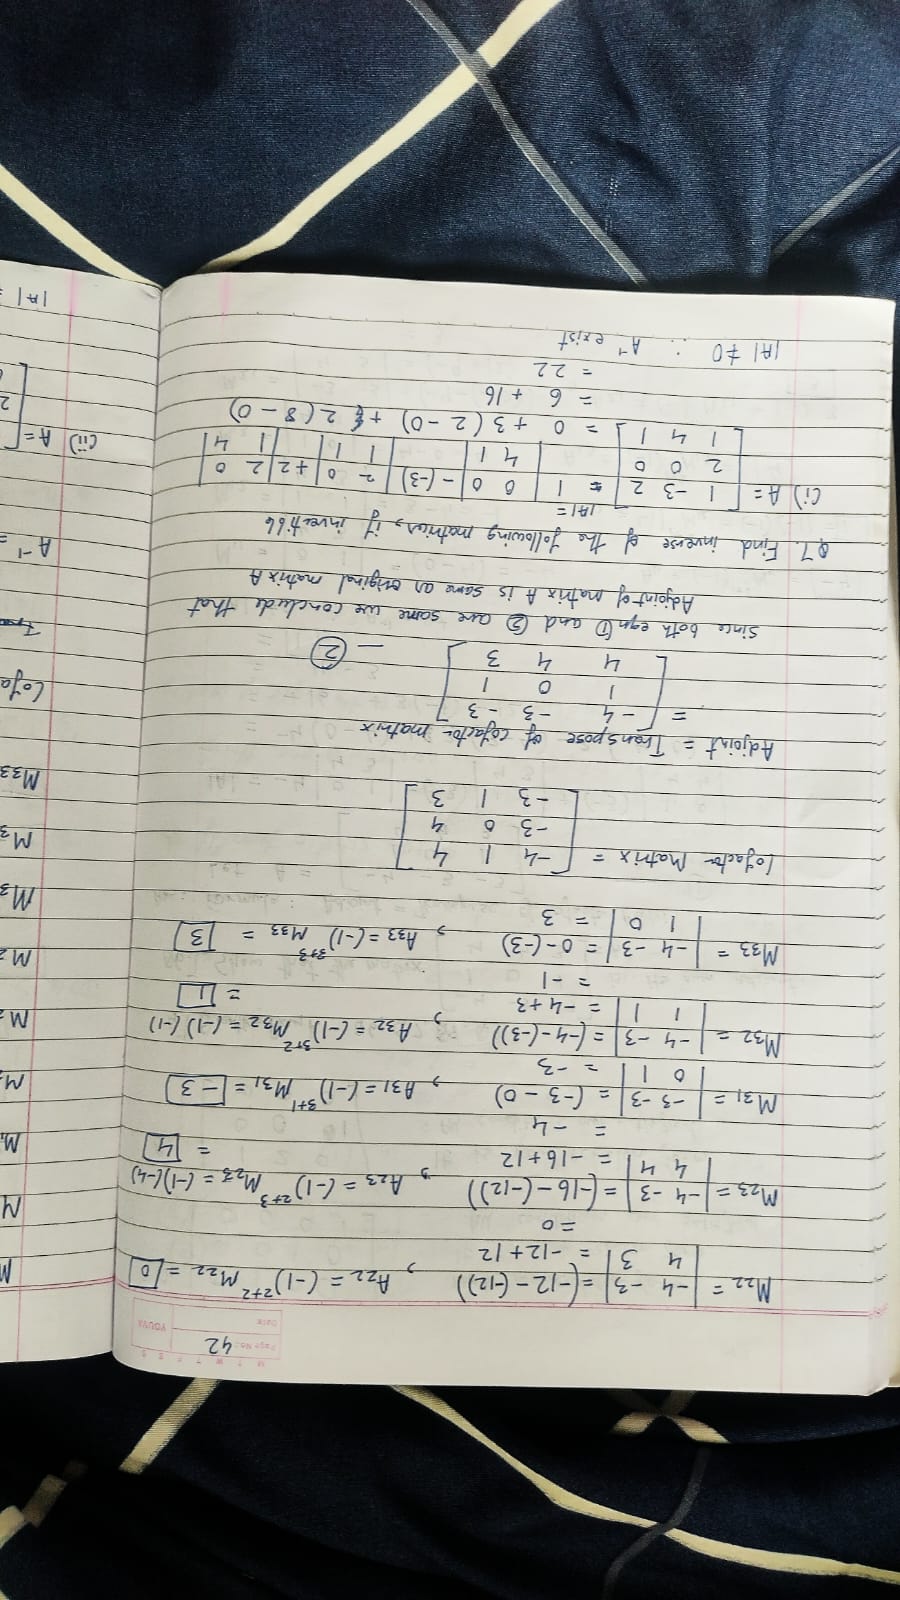 M T W T F S S
Page No.: 42
Date:
YOUVA
M22 = | -4 -3 | = (-12 - (-12)) , A22 = (-1)^2+2 M22 = 0
| 4 3 | = -12 + 12
= 0
M23 = | -4 -3 | = (-16 - (-12)) , A23 = (-1)^2+3 M23 = (-1)(-4)
| 4 4 | = -16 + 12 = 4
= -4
M31 = | -3 -3 | = (-3 - 0) , A31 = (-1)^3+1 M31 = -3
| 0 1 | = -3
M32 = | -4 -3 | = (-4 - (-3)) , A32 = (-1)^3+2 M32 = (-1) (-1)
| 1 1 | = -4 + 3 = 1
= -1
M33 = | -4 -3 | = 0 - (-3) , A33 = (-1)^3+3 M33 = 3
| 1 0 | = 3
Cofactor Matrix = [ -4 1 4
-3 0 4
-3 1 3 ]
Adjoint = Transpose of cofactor matrix
= [ -4 -3 -3
1 0 1
4 4 3 ] — ②
since both eqn ① and ② are same we conclude that
Adjoint of matrix A is same as original matrix A
Q7. Find inverse of the following matrices, if invertible
|A| =
(i) A = [ 1 -3 2 ] = 1 | 0 0 | - (-3) | 2 0 | + 2 | 2 0 |
[ 2 0 0 ] | 4 1 | | 1 1 | | 1 4 |
[ 1 4 1 ] = 0 + 3 ( 2 - 0 ) + 2 ( 8 - 0 )
= 6 + 16
= 22
|A| ≠ 0 ∴ A^-1 exist
M
M
M
M
M3
M3
M33
Cofa
A^-1 =
(ii) A = [
2
|A| =